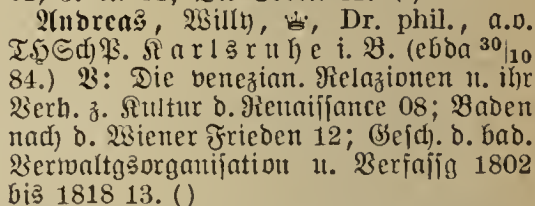 Andreas, Willy, ♛, Dr. phil., a.o.
THSchP. Karlsruhe i. B. (ebda 30|10
84.) V: Die venezian. Relazionen u. ihr
Verh. z. Kultur d. Renaissance 08; Baden
nach d. Wiener Frieden 12; Gesch. d. bad.
Verwaltgsorganisation u. Verfassg 1802
bis 1818 13. ()